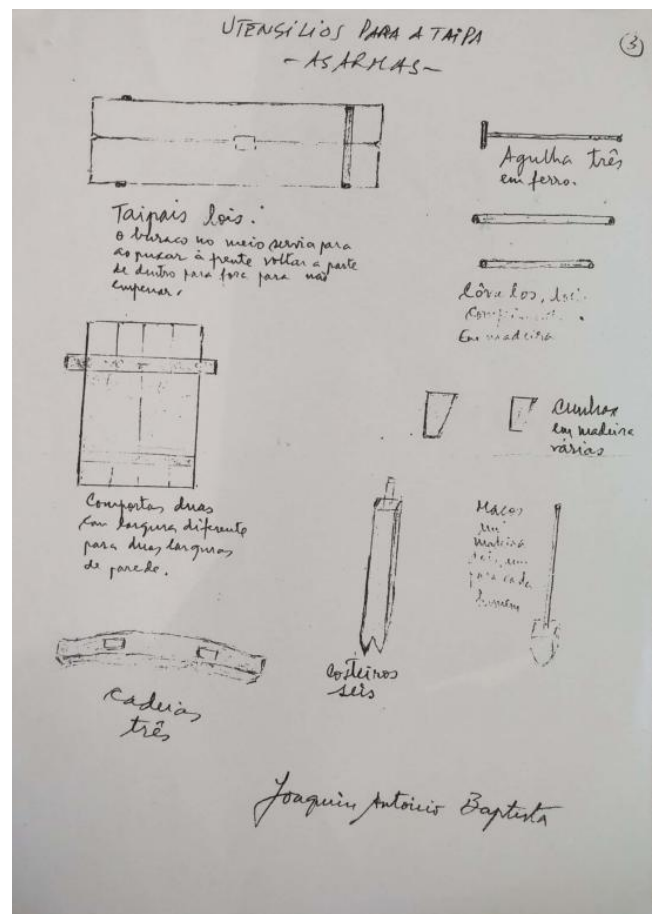 UTENSÍLIOS PARA A TAIPA
- AS ARMAS -
3
Taipais dois.
o buraco no meio servia para
ao puxar à frente voltar a parte
de dentro para fora para não
empenar.
Agulha três
em ferro.
Côvelos, dois
Em madeira
Cunhas
em madeira
várias
Comportas duas
com largura diferente
para duas larguras
de parede.
Maços
em
madeira
dois, um
para cada
homem
Costeiros
seis
Cadeias
três
Joaquim António Baptista